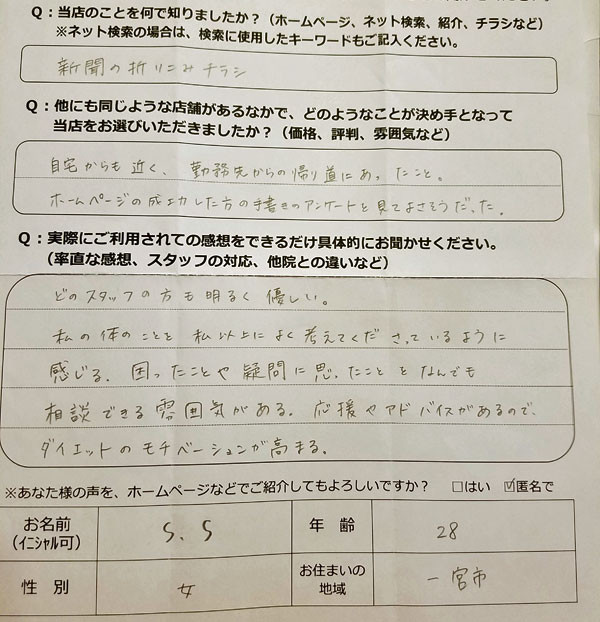 Q:当店のことを何で知りましたか?(ホームページ、ネット検索、紹介、チラシなど)
※ネット検索の場合は、検索に使用したキーワードもご記入ください。
新聞の折りこみチラシ
Q:他にも同じような店舗があるなかで、どのようなことが決め手となって
当店をお選びいただきましたか?(価格、評判、雰囲気など)
自宅からも近く、勤務先からの帰り道にあったこと。
ホームページの成功した方の手書きのアンケートを見てよさそうだった。
Q:実際にご利用されての感想をできるだけ具体的にお聞かせください。
(率直な感想、スタッフの対応、他院との違いなど)
どのスタッフの方も明るく優しい。
私の体のことを私以上によく考えてくださっているように
感じる。困ったことや疑問に思ったことをなんでも
相談できる雰囲気がある。応援やアドバイスがあるので、
ダイエットのモチベーションが高まる。
※あなた様の声を、ホームページなどでご紹介してもよろしいですか? □はい ☑匿名で
お名前 S.S 年 齢 28
(イニシャル可)
性 別 女 お住まいの 一宮市
地域